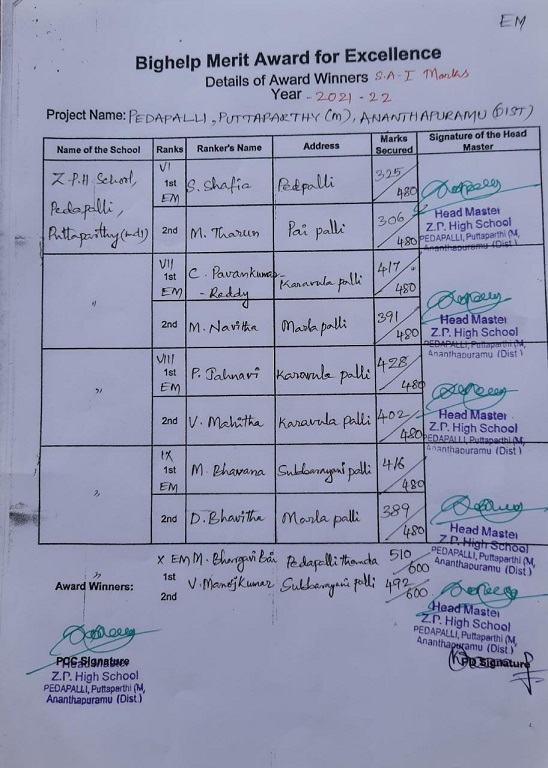 EM
Bighelp Merit Award for Excellence
Details of Award Winners S.A-I Marks
Year - 2021-22
Project Name: PEDAPALLI, PUTTAPARTHY (M), ANANTHAPURAMU (DIST)
Name of the School Ranks Ranker's Name Address Marks Secured Signature of the Head Master
Z.P.H School, Pedapalli, Puttaparthy(md) VI 1st EM S. Shafia Pedpalli 325/480
Head Master
Z.P. High School
PEDAPALLI, Puttaparthi (M,
Ananthapuramu (Dist)
2nd M. Tharun Pai palli 306/480
" VII 1st EM C. Pavankumar-Reddy Karavula palli 417/480
Head Master
Z.P. High School
PEDAPALLI, Puttaparthi (M,
Ananthapuramu (Dist)
2nd M. Navitha Marla palli 391/480
" VIII 1st EM P. Jahnavi Karavula palli 428/480
Head Master
Z.P. High School
PEDAPALLI, Puttaparthi (M,
Ananthapuramu (Dist)
2nd V. Mahitha Karavula palli 402/480
" IX 1st EM M. Bhavana Subbarayani palli 416/480
Head Master
Z.P. High School
PEDAPALLI, Puttaparthi (M,
Ananthapuramu (Dist)
2nd D. Bhavitha Marla palli 389/480
X EM 1st M. Bhargavi Bai Pedapalli thanda 510/600
" 2nd V. Manoj Kumar Subbarayani palli 492/600
Award Winners:
Head Master
Z.P. High School
PEDAPALLI, Puttaparthi (M,
Ananthapuramu (Dist)
PCC Signature
Head Master
Z.P. High School
PEDAPALLI, Puttaparthi (M,
Ananthapuramu (Dist)
PD Signature